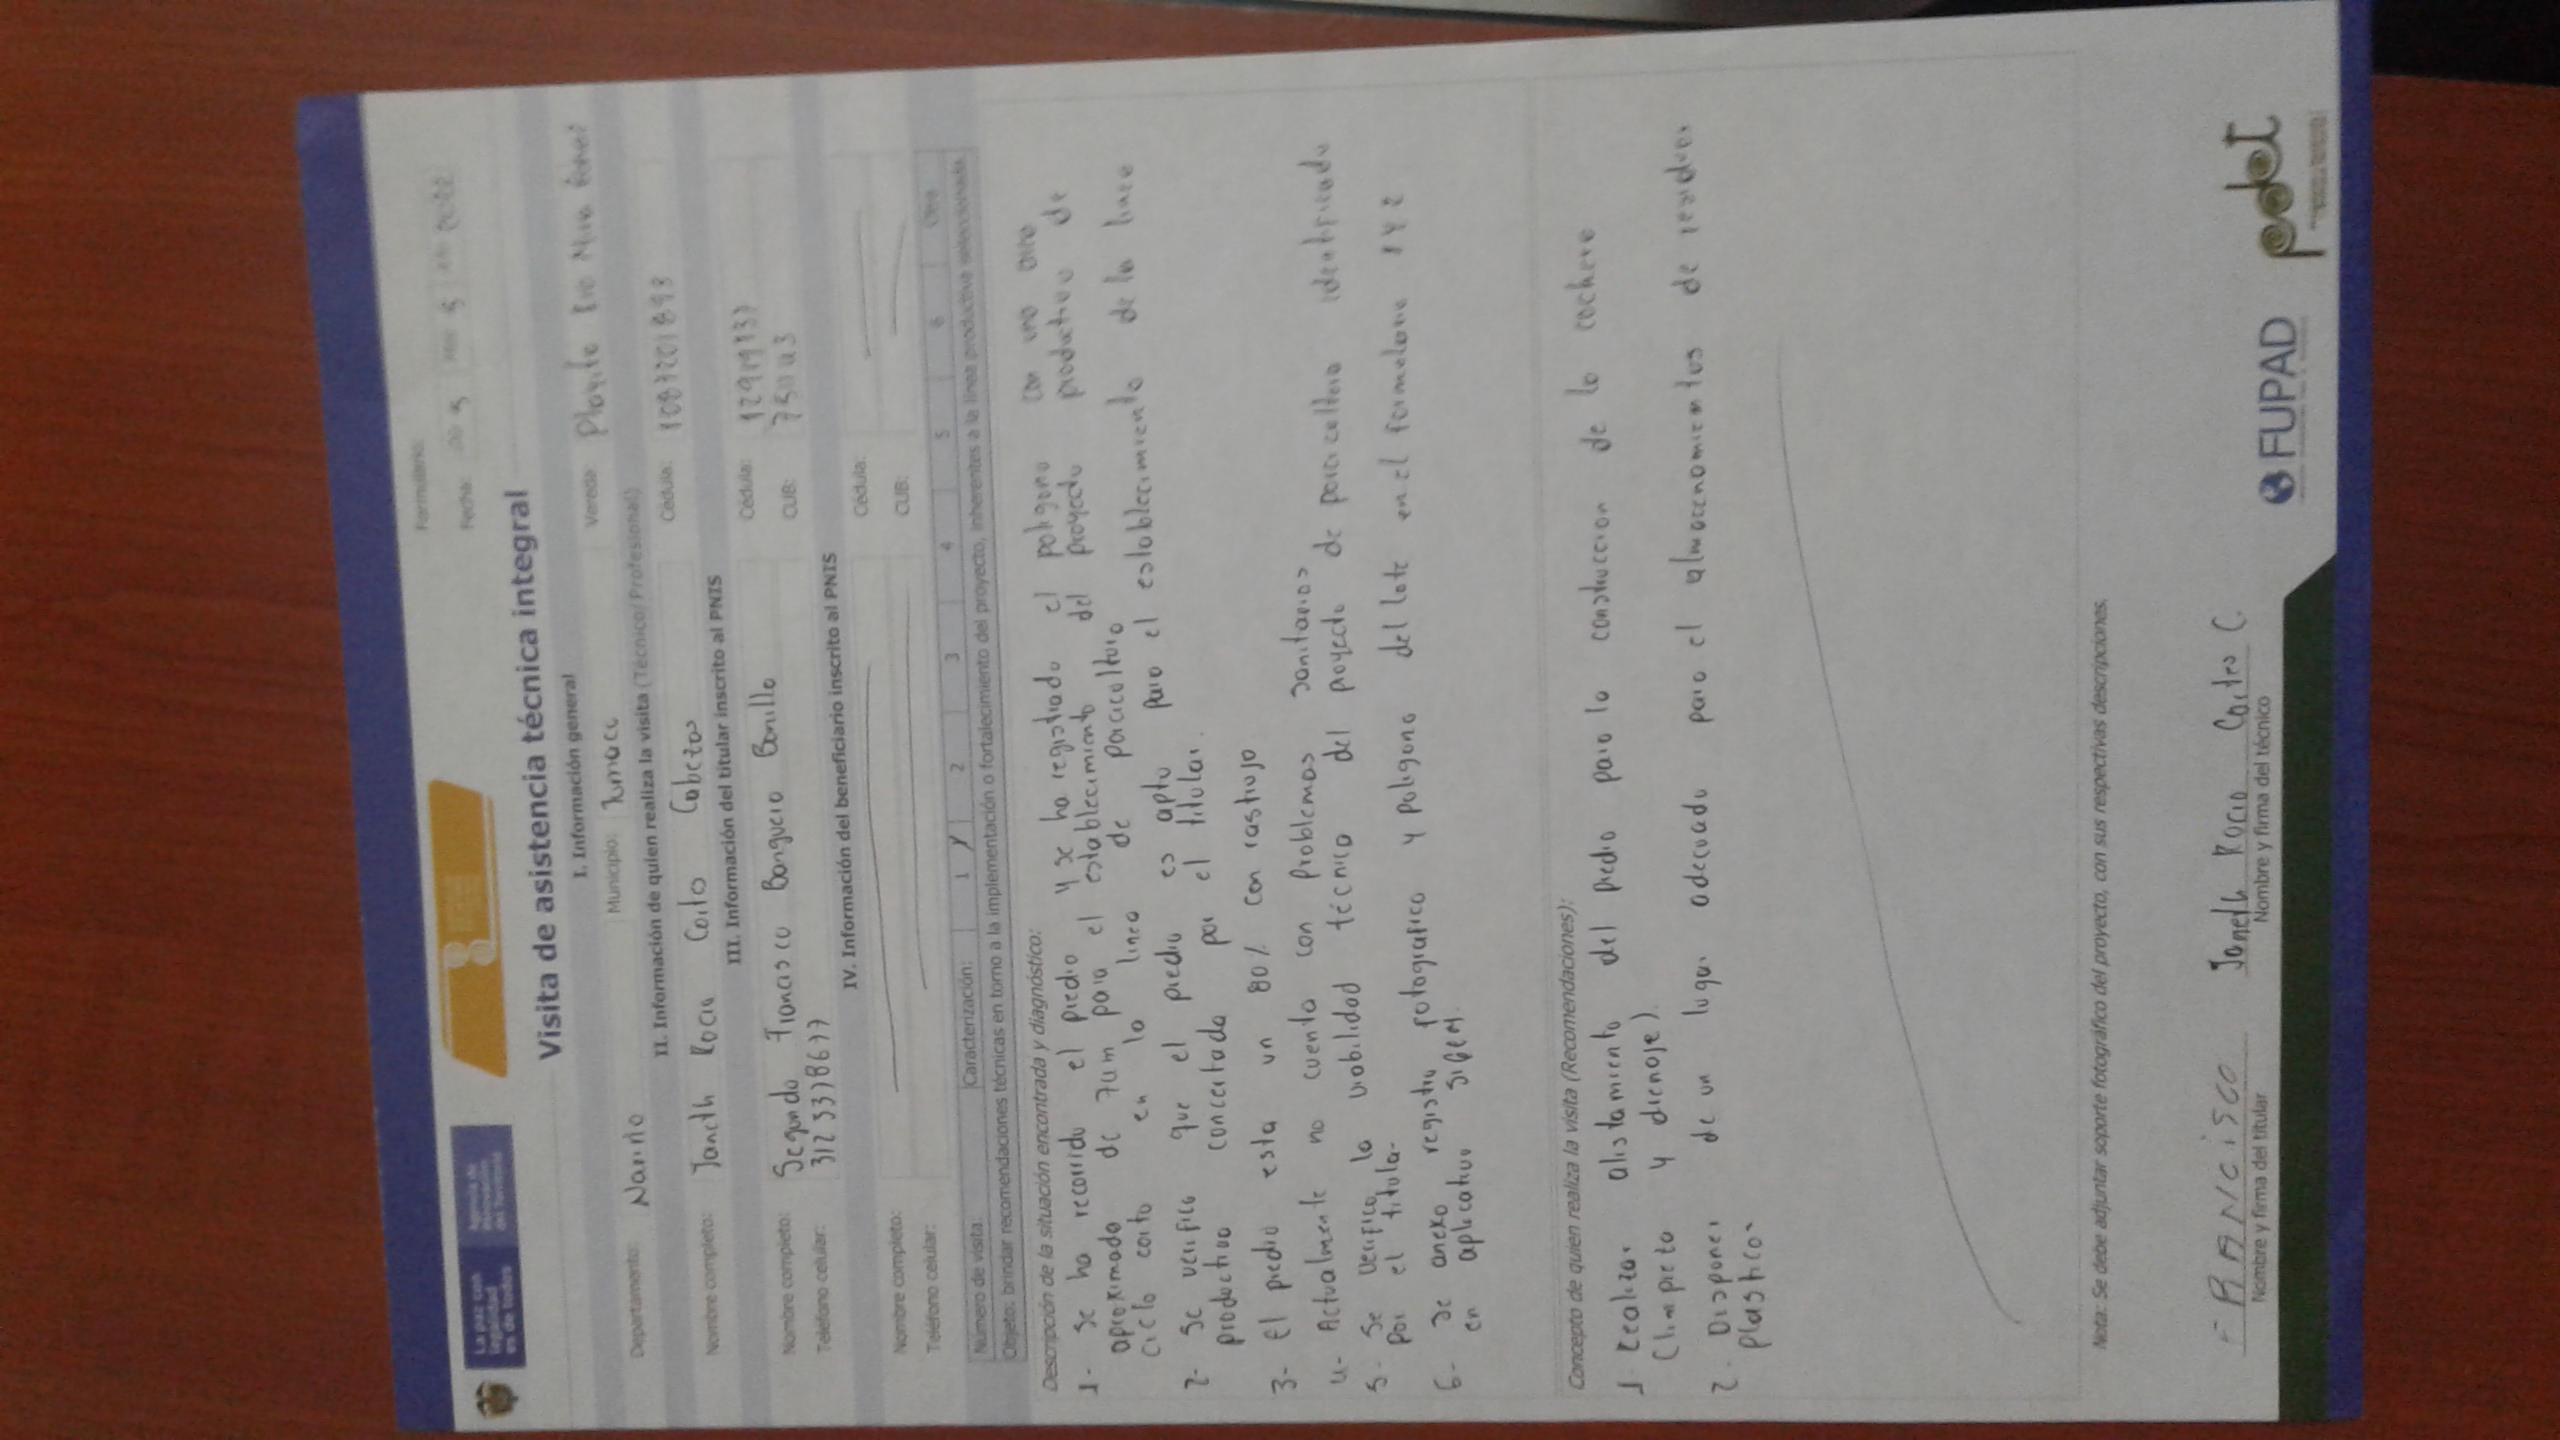 La paz con
legalidad
es de todos
Agencia de
Renovación
del Territorio
Formulario:
Fecha: 5 5 2022
Visita de asistencia técnica integral
I. Información general
Departamento: Nariño Municipio: Tumaco Vereda: Playita Rio Mira
II. Información de quien realiza la visita (Técnico/Profesional)
Nombre completo: Janeth Rocio Coito Cabezas Cédula: 1087201893
III. Información del titular inscrito al PNIS
Nombre completo: Segundo Francisco Banguera Bonilla Cédula: 12919137
Teléfono celular: 3123378677 CUB:
IV. Información del beneficiario inscrito al PNIS
Nombre completo: Cédula:
Teléfono celular: CUB:
Número de visita: Caracterización: 1 X 2 3 4 5 6 Otra
Objeto: brindar recomendaciones técnicas en torno a la implementación o fortalecimiento del proyecto, inherentes a la línea productiva seleccionada.
Descripción de la situación encontrada y diagnóstico:
1- Se ha recorrido el predio y se ha registrado el poligono con una area
aproximada de 74m para el establecimiento del proyecto productivo de
ciclo corto en la linea de porcicultura
2- Se verifico que el predio es apto para el establecimiento de la linea
productiva concertada por el titular.
3- El predio esta un 80% con rastrojo
4- Actualmente no cuenta con problemas sanitarios
5- Se verifico la viabilidad técnica del proyecto de porcicultura identificado
por el titular.
6- Se anexo registro fotografico y poligono del lote en el formulario 1 y 2
en aplicativo SIGEM.
Concepto de quien realiza la visita (Recomendaciones):
1- Realizar alistamiento del predio para la construccion de la cochera
(limpieta y drenaje).
2- Disponer de un lugar adecuado para el almacenamientos de residuos
plasticos.
Nota: Se debe adjuntar soporte fotográfico del proyecto, con sus respectivas descripciones.
FRANCISCO Janeth Rocio Cortes C.
Nombre y firma del titular Nombre y firma del técnico
FUPAD
pdet